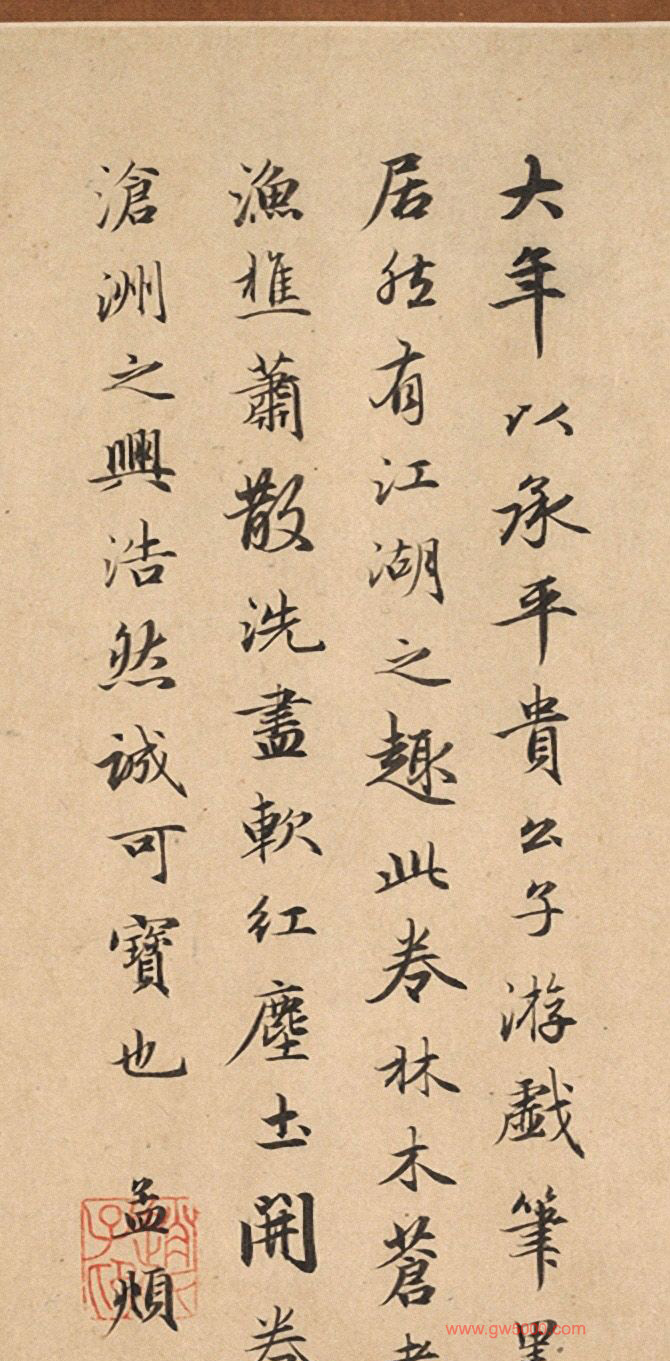 大年以承平貴公子游戲筆墨
居然有江湖之趣此卷林木蒼
漁樵蕭散洗盡軟紅塵土開卷
滄洲之興浩然誠可寶也 孟頫
趙氏子印
www.gw5000.com